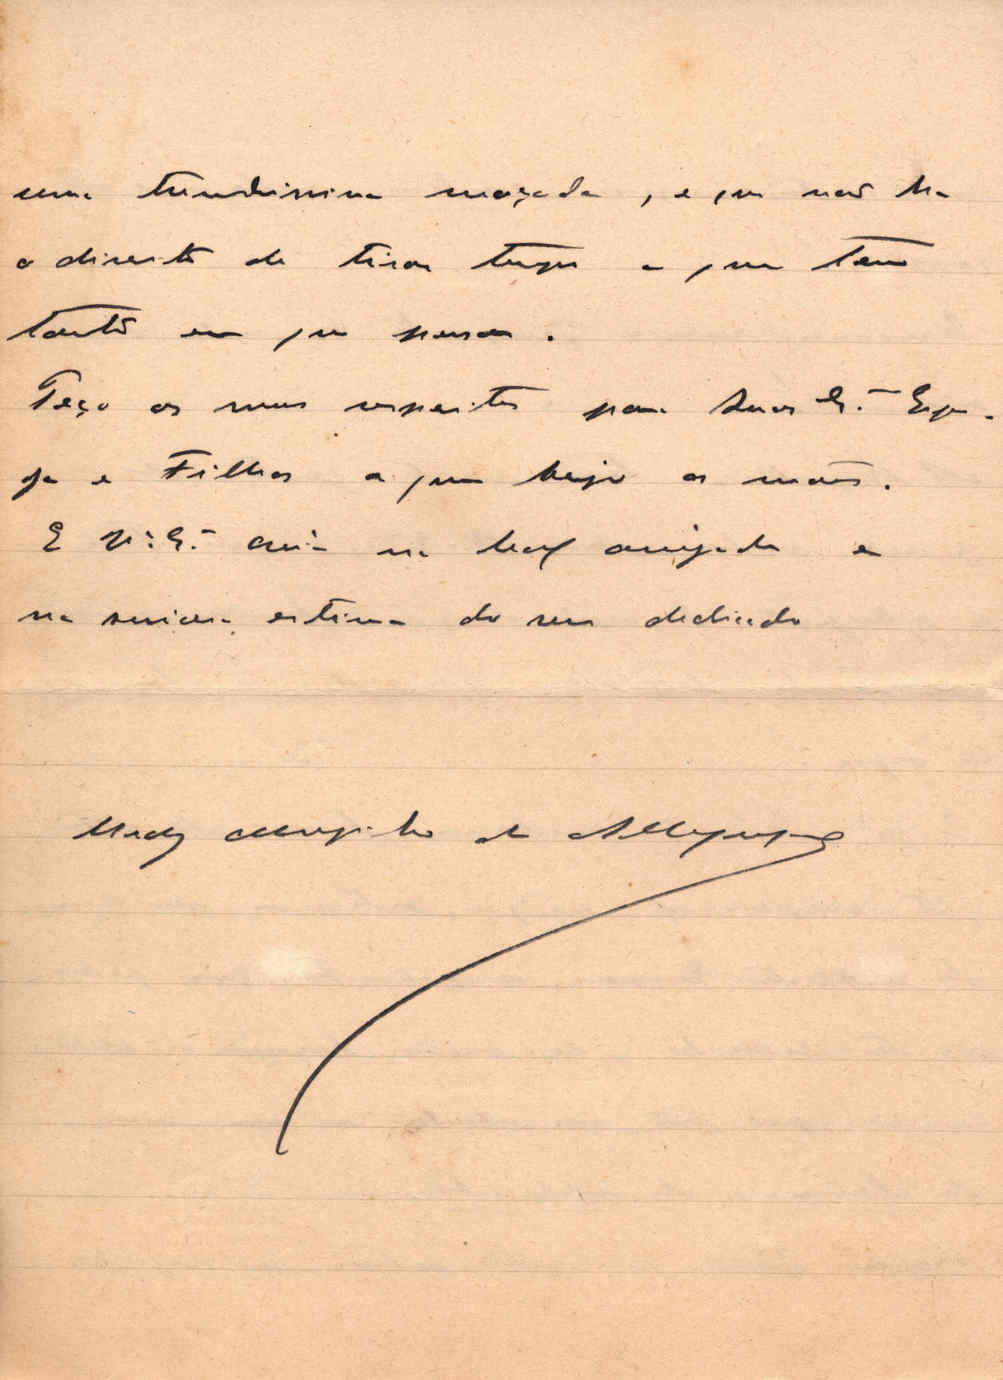 uma tremendissima maçada, e que não ha
o direito de tirar tempo a quem tem
tanto em que pensar.
Peço os meus respeitos para Suas Ex.as Espo-
sa e Filhas a quem beijo as mãos.
E V. Ex.a creia na leal amizade e
na sincera estima do seu dedicado
de Albuquerque